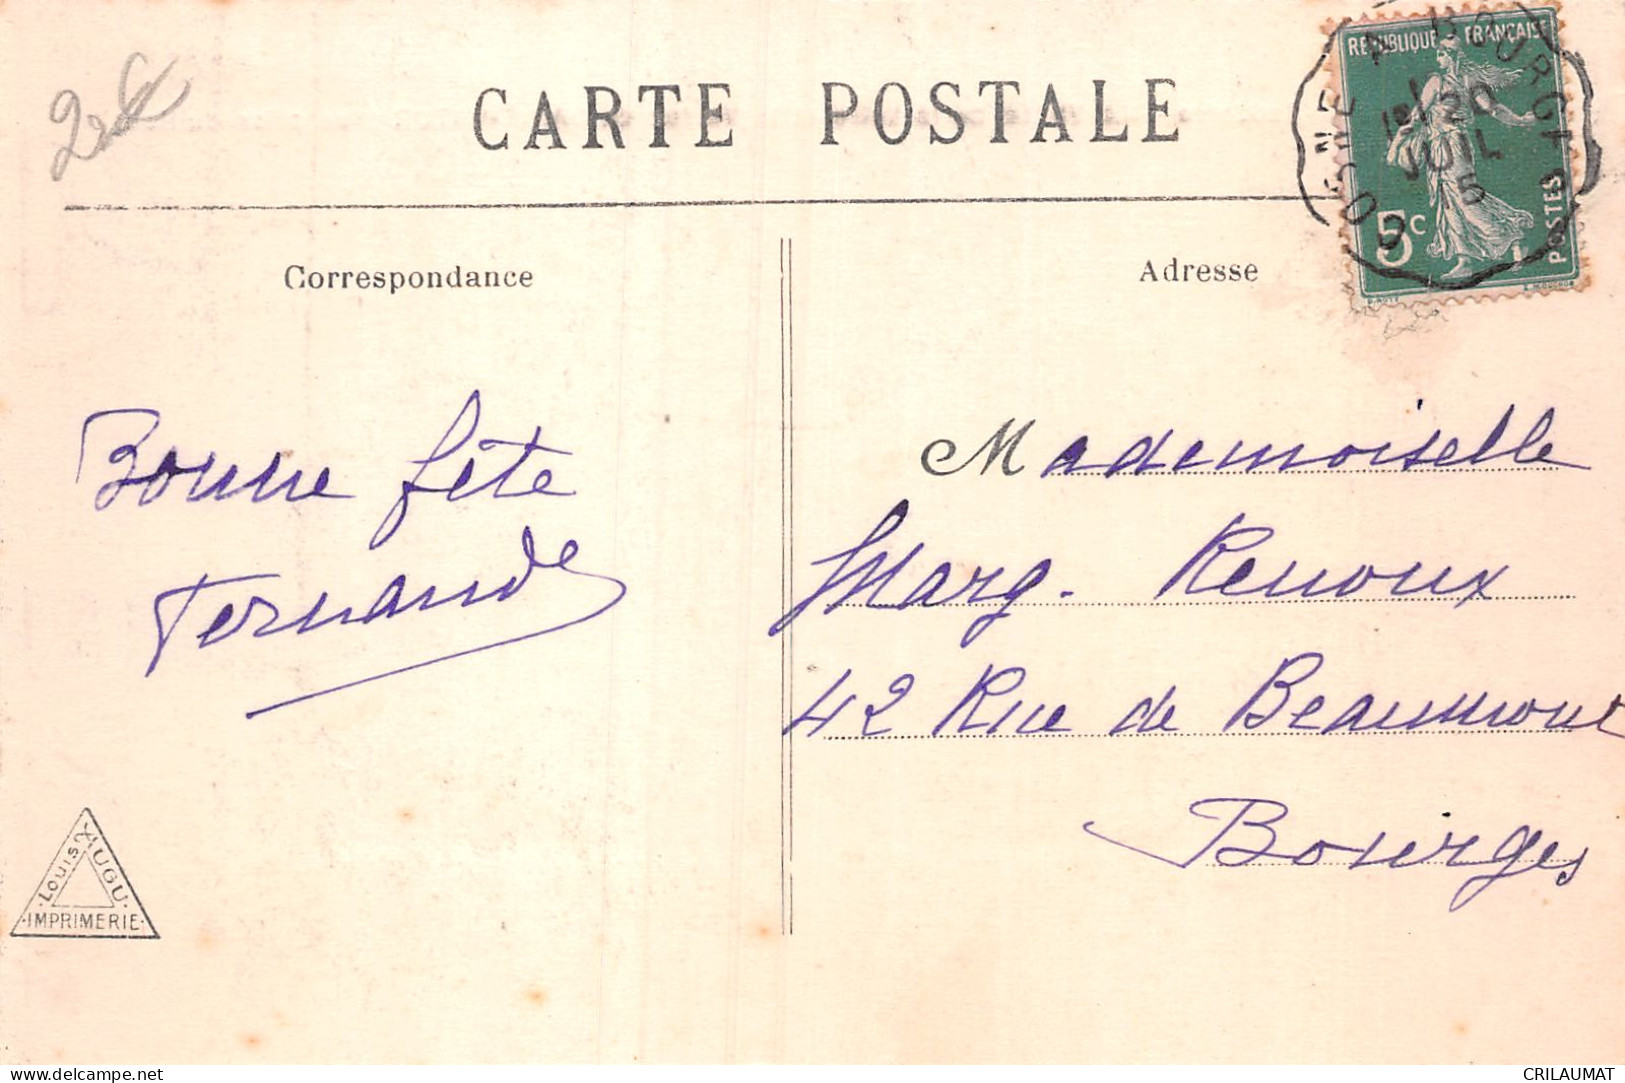 CARTE POSTALE
RÉPUBLIQUE FRANÇAISE
20
JUIL
5
5c
POSTES
Correspondance
Adresse
Bonne fête
Fernande
Mademoiselle
Marg. Renoux
42 Rue de Beaumont
Bourges
LOUIS AUGU
IMPRIMERIE
delcampe.net
CRILAUMAT